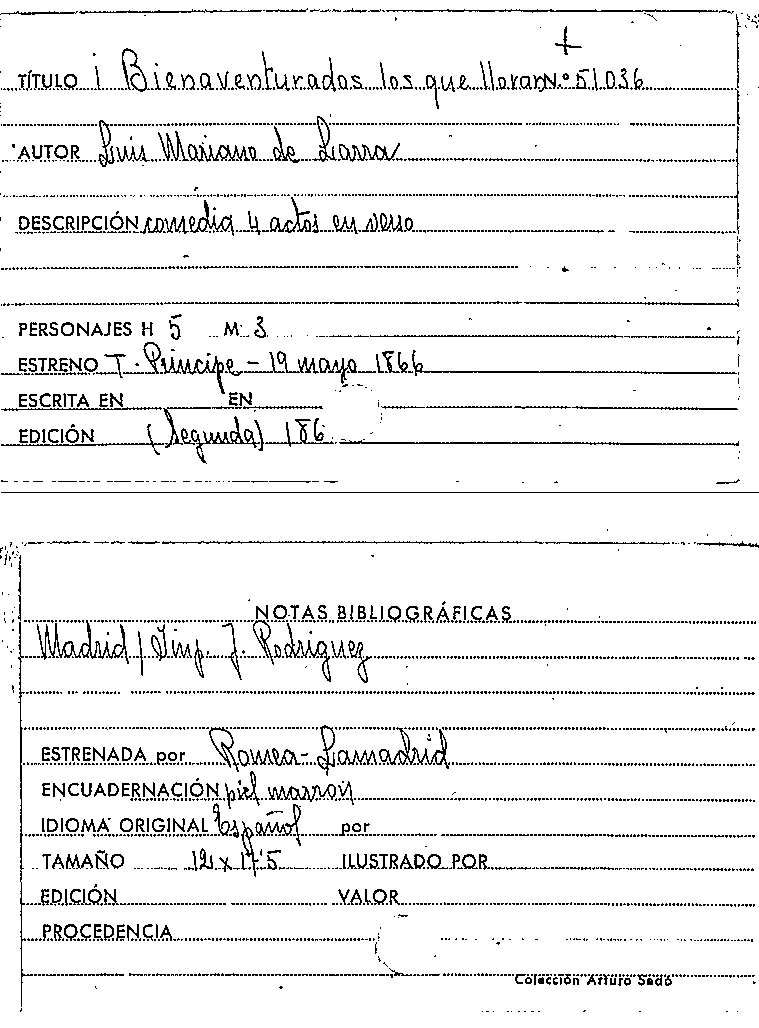 +
TÍTULO ¡ Bienaventurados los que lloran N.º 51036
AUTOR Luis Mariano de Larra
DESCRIPCIÓN comedia 4 actos en verso
PERSONAJES H 5 M 3
ESTRENO T. Principe - 19 mayo 1866
ESCRITA EN EN
EDICIÓN (Segunda) 186
NOTAS BIBLIOGRÁFICAS
Madrid / Imp. J. Rodriguez
ESTRENADA por Romea-Lamadrid
ENCUADERNACIÓN piel marrón
IDIOMA ORIGINAL Español por
TAMAÑO 12 x 17'5 ILUSTRADO POR
EDICIÓN VALOR
PROCEDENCIA
Colección Arturo Sedó